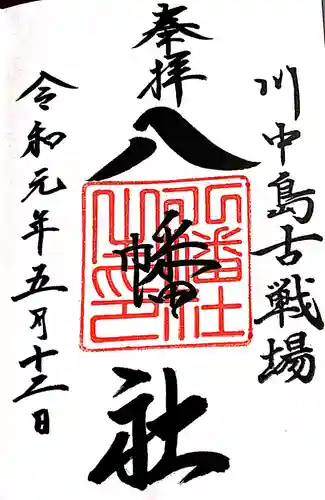 川中島古戦場
奉拝
八幡社
令和元年五月十二日